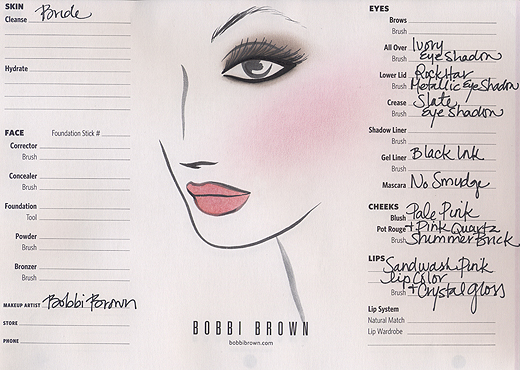 SKIN
Cleanse Bride
Hydrate
FACE Foundation Stick #
Corrector
Brush
Concealer
Brush
Foundation
Tool
Powder
Brush
Bronzer
Brush
MAKEUP ARTIST Bobbi Brown
STORE
PHONE
BOBBI BROWN
bobbibrown.com
EYES
Brows
Brush
All Over Ivory
Brush Eye Shadow
Lower Lid Rockstar
Brush Metallic Eye Shadow
Crease Slate
Brush Eye Shadow
Shadow Liner
Brush
Gel Liner Black Ink
Brush
Mascara No Smudge
CHEEKS
Blush Pale Pink
Pot Rouge + Pink Quartz
Brush Shimmer Brick
LIPS
Sandwash Pink
Lip Color
Brush + Crystal gloss
Lip System
Natural Match
Lip Wardrobe